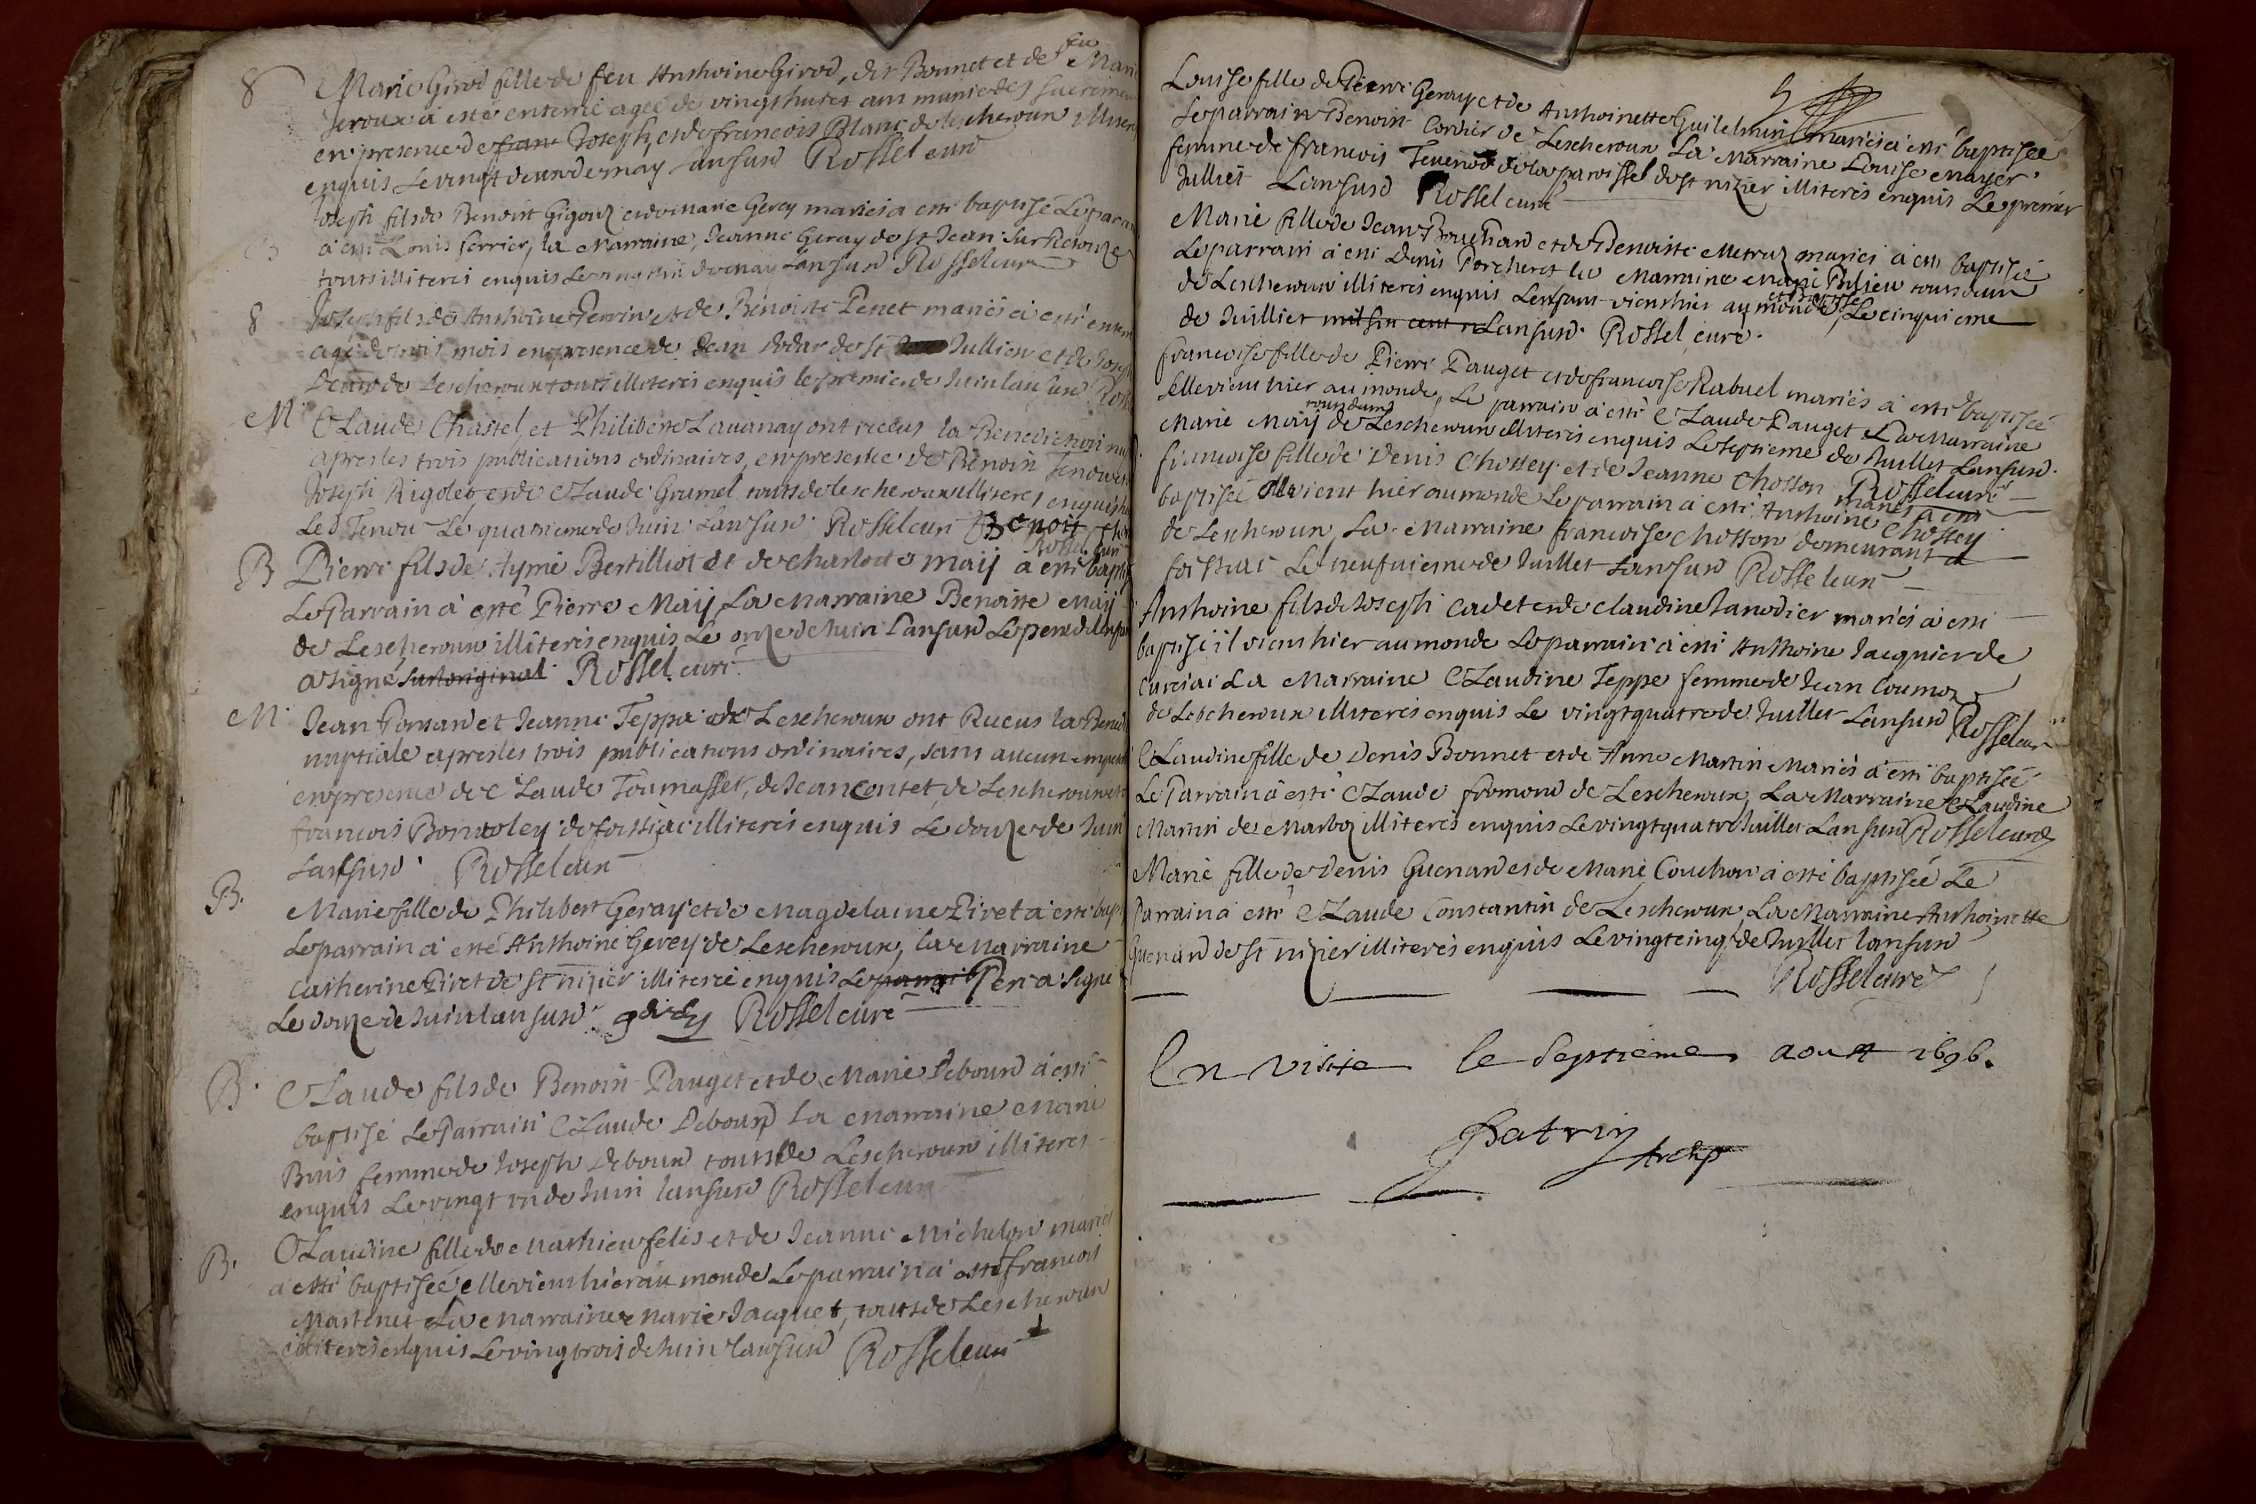 8 Marie Girod fille de feu Anthoine Girod, dit Bonnet et de feu Marie
a esté enterré agee de vingthuict ans munie des sacremen
en presence de franc Joseph, et de francois Blanc de lescheroux
enquis Le vingt de may Lansusd Rossel curé
Joseph fils de Benoist Gigoux et de marie Gerey mariés a esté baptisé Le para
a esté Louis ferrier, la Marraine, Jeanne Geray de st Jean sur Resouze
touts illiteres enquis Le de may Lansusd Rossel curé
8 Joseph fils de Anthoine Perrin et de Benoiste Penet mariés a esté enterr
agé de mois en presence de Jean de st Jullien et de Joseph
de Lescheroux touts illiteres enquis le premier de Juin lansusd Ross
M Claude Chastel et Philiberte Lauanay ont receus la Benediction nup
apres les trois publications ordinaires, en presence de Benoist Tenou
Joseph Rigolet et de Claude Gramel touts de lescheroux illiteres enquis
Le d Tenou Le quatrieme de Juin Lansusd Rossel curé Benoit
Rossel curé
B Pierre fils de Aymé Bertilliot et de charlotte maij a esté bapti
Le Parrain a esté Pierre Maij La Marraine Benoiste Maij
de Lescheroux illiteres enquis Le onze de Juin Lansusd Le pere de
a signé sur loriginal Rossel curé
M Jean Ponsard et Jeanne Teppe de Lescheroux ont Receus la Bened
nuptiale apres les trois publications ordinaires, sans aucun
en presence de Claude Toumassel, de Jean Contet de Lescheroux
francois Bonvoley de foissiac illiteres enquis Le douze de Juin
Lansusd Rossel curé
B. Marie fille de Philibert Geray et de Magdelaine Piret a esté bapt
Le parrain a esté Anthoine Gerey de Lescheroux, la Marraine
Catherine Piret de st nizier illiteré enquis Le parrai Pere a signé
Le douze de Juin lansusd Rossel curé
B. Claude fils de Benoist Pauget et de Marie Debourd a esté
baptisé Le Parrain Claude Debourd la Marraine Marie
Buis femme de Joseph Debourd touts de Lescheroux illiteres
enquis Le vingt un de Juin lansusd Rossel curé
B. Claudine fille de Mathieu felis et de Jeanne Michelon mariés
a esté baptisée elle vient hier au monde Le parrain a esté francois
Martinet La Marraine Marie Jacquet, touts de Lescheroux
illiteres enquis Le vingtrois de Juin lansusd Rossel curé
Louise fille de Pierre Geray et de Anthoinette Guilelmin mariés a esté baptisée
Le parrain Benoist Cordier de Lescheroux La Marraine Louise
femme de francois Teuenod de la paroisse de st nizier illiteres enquis Le premier
Julliet Lansusd Rossel curé
Marie fille de Jean Bouchard et de Benoiste Metraz mariés a esté baptisée
Le parrain a esté Denis Percheret la Marraine Marie Pilieu touts deux
de Lescheroux illiteres enquis Lenfant vient hier au monde, Le cinquieme
de Juilliet mil six cent n Lansusd. Rossel curé.
francoise fille de Pierre Pauget et de francoise Rabuel mariés a esté baptisée
elle vient hier au monde, Le parrain a esté Claude Pauget La Marraine
touts deux
Marie Maij de Lescheroux illiteres enquis Le septieme de Juillet Lansusd.
Rossel curé
francoise fille de Denis Chossey et de Jeanne Chosson mariés a esté
baptisée elle vient hier au monde Le parrain a esté Anthoine Chossey
de Lescheroux, La Marraine francoise Chosson demeurant a
foissiat Le neufuieme de Juillet Lansusd Rossel curé
Anthoine fils de Joseph Cadet et de claudine Janodier mariés a esté
baptisé il vient hier au monde Le parrain a esté Anthoine Jacquier de
Curciat La Marraine Claudine Teppe femme de Jean Coumoz
de Lescheroux illiteres enquis Le vingtquatre de Juillet Lansusd Rossel curé
Claudine fille de Denis Bonnet et de Anne Martin Mariés a esté baptisée
Le Parrain a esté Claude fromond de Lescheroux, La Marraine Claudine
Martin de Marboz illiteres enquis Le vingtquatre Juillet Lansusd Rossel curé
Marie fille de Denis Guenard et de Marie Couchou a esté baptisée Le
Parrain a esté Claude Constantin de Lescheroux, La Marraine Anthoinette
Guenard de st nizier illiteres enquis Le vingtcinq de Juillet lansusd
Rossel curé
En visite le septieme aoust 1696.